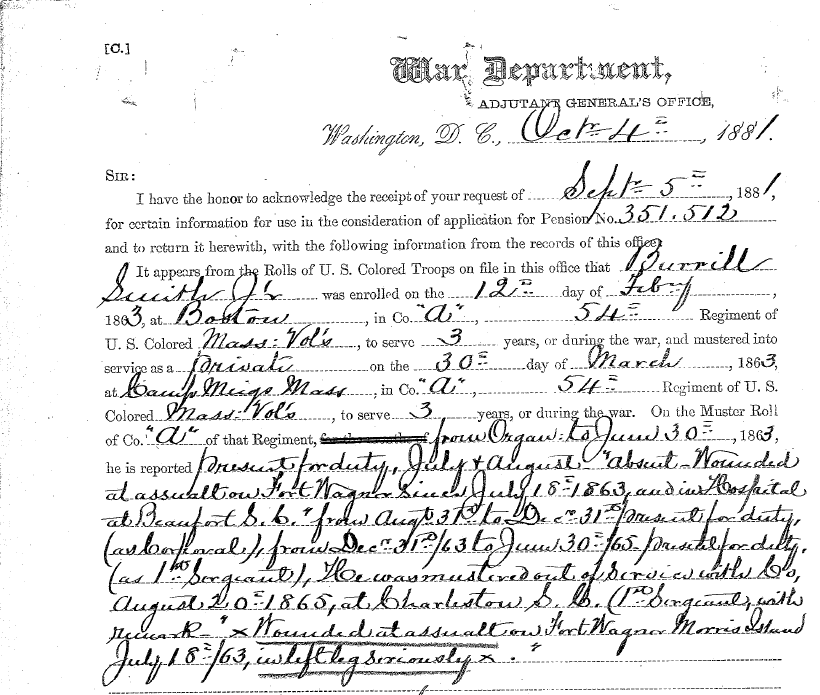 [C.]
War Department,
ADJUTANT GENERAL'S OFFICE,
Washington, D. C., Octr 4th, 1881.
SIR:
I have the honor to acknowledge the receipt of your request of Septr 5th, 1881,
for certain information for use in the consideration of application for Pension No. 351.512
and to return it herewith, with the following information from the records of this office.
It appears from the Rolls of U. S. Colored Troops on file in this office that Burrill
Smith Jr was enrolled on the 12th day of Feby,
1863, at Boston, in Co. "A", 54th Regiment of
U. S. Colored Mass. Vol's, to serve 3 years, or during the war, and mustered into
service as a Private on the 30th day of March, 1863,
at Camp Meigs Mass, in Co. "A", 54th Regiment of U. S.
Colored Mass. Vol's, to serve 3 years, or during the war. On the Muster Roll
of Co. "A" of that Regiment, from Organ. to June 30th, 1863,
he is reported present for duty, July & August "absent - Wounded
at assualt on Fort Wagner Since July 18th 1863, and in Hospital
at Beaufort S. C." from Augt 31st to Decr 31st/ present for duty,
(as Corporal), from Decr 31st/63 to June 30th/65 present for duty.
(as 1st Sergeant), He was mustered out of Service with Co,
August 20th 1865, at Charleston S. C. (1st Sergeant, with
remark - "x Wounded at assualt on Fort Wagner Morris Island
July 18th/63, in left leg seriously x."